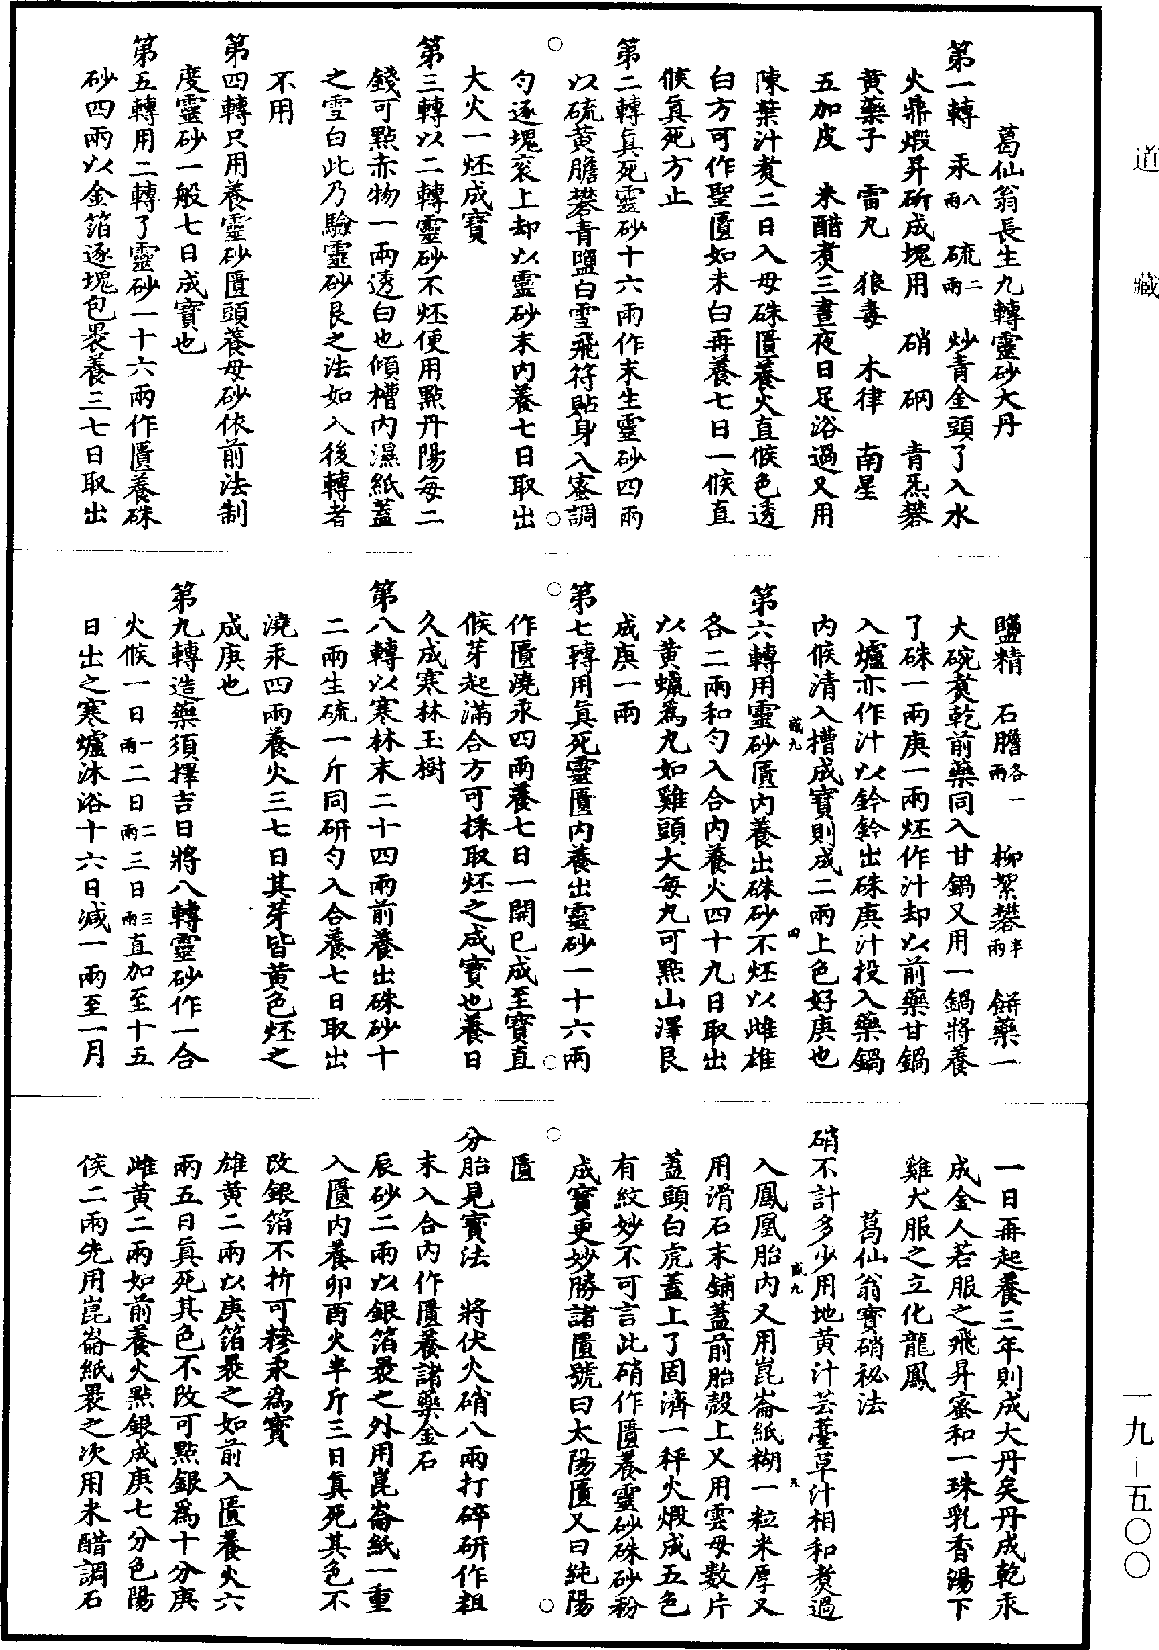 道藏
一九—五〇〇
葛仙翁長生九轉靈砂大丹
第一轉　汞八兩　硫二兩　炒青金頭了入水
火鼎煅昇斫成塊用　硝　硇　青炁礬
黃藥子　雷丸　狼毒　木律　南星
五加皮　米醋煮三晝夜日足浴過又用
陳葉汁煮二日入母硃匱養火直候色透
白方可作聖匱如未白再養七日一候直
候真死方止
第二轉真死靈砂十六兩作末生靈砂四兩
以硫黃膽礬青鹽白雪飛符貼身入蜜調
勻逐塊衮上却以靈砂末內養七日取出
大火一坯成寶
第三轉以二轉靈砂不坯便用點丹陽每二
錢可點赤物一兩透白也傾槽內濕紙蓋
之雪白此乃驗靈砂艮之法如入後轉者
不用
第四轉只用養靈砂匱頭養母砂依前法制
度靈砂一般七日成寶也
第五轉用二轉了靈砂一十六兩作匱養硃
砂四兩以金箔逐塊包裹養三七日取出
鹽精　石膽各一兩　柳絮礬半兩　餅藥一
大碗煮乾前藥同入甘鍋又用一鍋將養
了硃一兩庚一兩坯作汁却以前藥甘鍋
入爐亦作汁以鈐鈐出硃庚汁投入藥鍋
內候清入槽成寶則成二兩上色好庚也
第六轉用靈砂匱內養出硃砂不坯以雌雄
各二兩和勻入合內養火四十九日取出
以黃蠟為丸如雞頭大每丸可點山澤艮
成庚一兩
第七轉用真死靈匱內養出靈砂一十六兩
作匱澆汞四兩養七日一開已成至寶直
候芽起滿合方可採取坯之成寶也養日
久成寒林玉樹
第八轉以寒林末二十四兩前養出硃砂十
二兩生硫一斤同研勻入合養七日取出
澆汞四兩養火三七日其芽皆黃色坯之
成庚也
第九轉造藥須擇吉日將八轉靈砂作一合
火候一日一兩二日二兩三日三兩直加至十五
日出之寒爐沐浴十六日減一兩至一月
一日再起養三年則成大丹矣丹成乾汞
成金人若服之飛昇蜜和一珠乳香湯下
雞犬服之立化龍鳳
葛仙翁寶硝秘法
硝不計多少用地黃汁芸薹草汁相和煮過
入鳳凰胎內又用崑崙紙糊一粒米厚又
用滑石末鋪蓋前胎殼上又用雲母數片
蓋頭白虎蓋上了固濟一秤火煅成五色
有紋妙不可言此硝作匱養靈砂硃砂粉
成寶更妙勝諸匱號曰太陽匱又曰純陽
匱
分胎見寶法　將伏火硝八兩打碎研作粗
末入合內作匱養諸藥金石
辰砂二兩以銀箔裹之外用崑崙紙一重
入匱內養卯酉火半斤三日真死其色不
改銀箔不折可糝汞為寶
雄黃二兩以庚箔裹之如前入匱養火六
兩五日真死其色不改可點銀為十分庚
雌黃二兩如前養火點銀成庚七分色陽
侯二兩先用崑崙紙裹之次用米醋調石